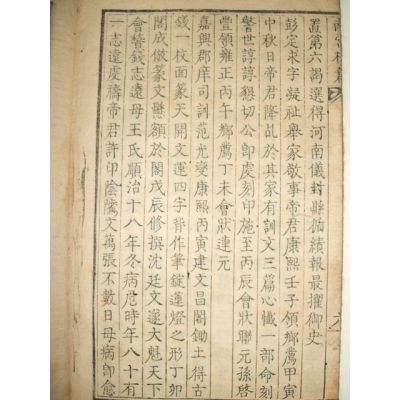 置第六謁選得河南儀封縣循績報最擢御史
彭定求字凝祉舉家敬事帝君康熙壬子領鄉薦甲寅
中秋日帝君降乩於其家有訓文三篇心懺一部命刻
警世諄諄懇切公即處刻印施至丙辰會狀聯元孫啓
豐領雍正丙午鄉薦丁未會狀連元
嘉興郡庠司訓范光燮康熙丙寅建文昌閣鋤土得古
錢一枚面篆天開文運四字背作筆錠蓮燈之形丁卯
閣成倣篆文懸額於閣戊辰修撰沈廷文遂大魁天下
會稽錢志遠母王氏順治十八年冬病危時年八十有
一志遠虔禱帝君許印陰騭文萬張不數日母病即愈